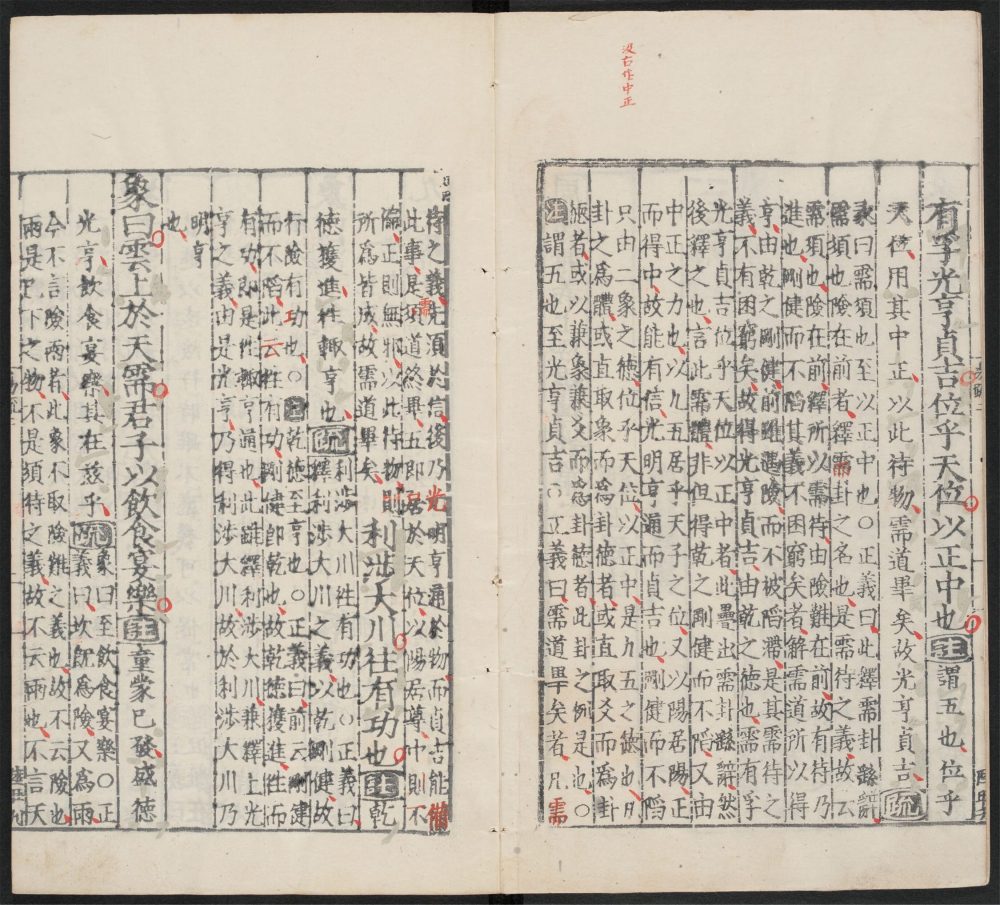 汲古作中正
有孚光亨貞吉位乎天位以正中也注謂五也位乎
天位用其中正以此待物需道畢矣故光亨貞吉疏
彖曰需須也至以正中也○正義曰此繹需卦繇辭
需須也險在前者釋需卦之名也是需待之義故云
需須也險在前釋所以需待由險難在前故有待乃
進也剛健而不陷其義不困窮矣者解需道所以得
亨由乾之剛健前雖遇險而不被陷滯是其需待之
義不有困窮矣故得光亨貞吉由乾之德也需有孚
光亨貞吉位乎天位以正中者此疊出需卦繇辭然
後釋之也言此需體非但得乾之剛健而不陷又由
中正之力也以九五居乎天子之位又以陽居陽正
而得中故能有信光明亨通而貞吉也剛健而不陷
只由二象之德位乎天位以正中是九五之德也凡
卦之爲體或直取象而爲卦德者或直取爻而爲卦
德者或以兼象兼爻而爲卦德者此卦之例是也○
注謂五也至光亨貞吉○正義曰需道畢矣者凡需
待之義先須於信後乃光明亨通於物而貞吉能備
此事是須道終畢五即居於天位以陽居尊中則不
偏正則無邪以此待物則
所爲皆成故需道畢矣
利涉大川往有功也注乾
德獲進往輒亨也疏
利涉大川往有功也○正義曰
釋利涉大川之義以乾剛健故
行險有功也○注乾德至亨也○正義曰前云剛健
而不陷此云往有功剛健即乾也故乾德獲進往而
有功即是往輒亨通也此雖釋利涉大川兼釋上光
亨之義由是光亨乃得利涉大川故於利涉大川乃
明亨
也
象曰雲上於天需君子以飲食宴樂注童蒙已發盛德
光亨飲食宴樂其在茲乎疏
象曰至飲食宴樂○正
義曰坎既爲險又爲雨
今不言險雨者此象不取險難之義也故不云險也
雨是已下之物不是須待之義故不云雨也不言天